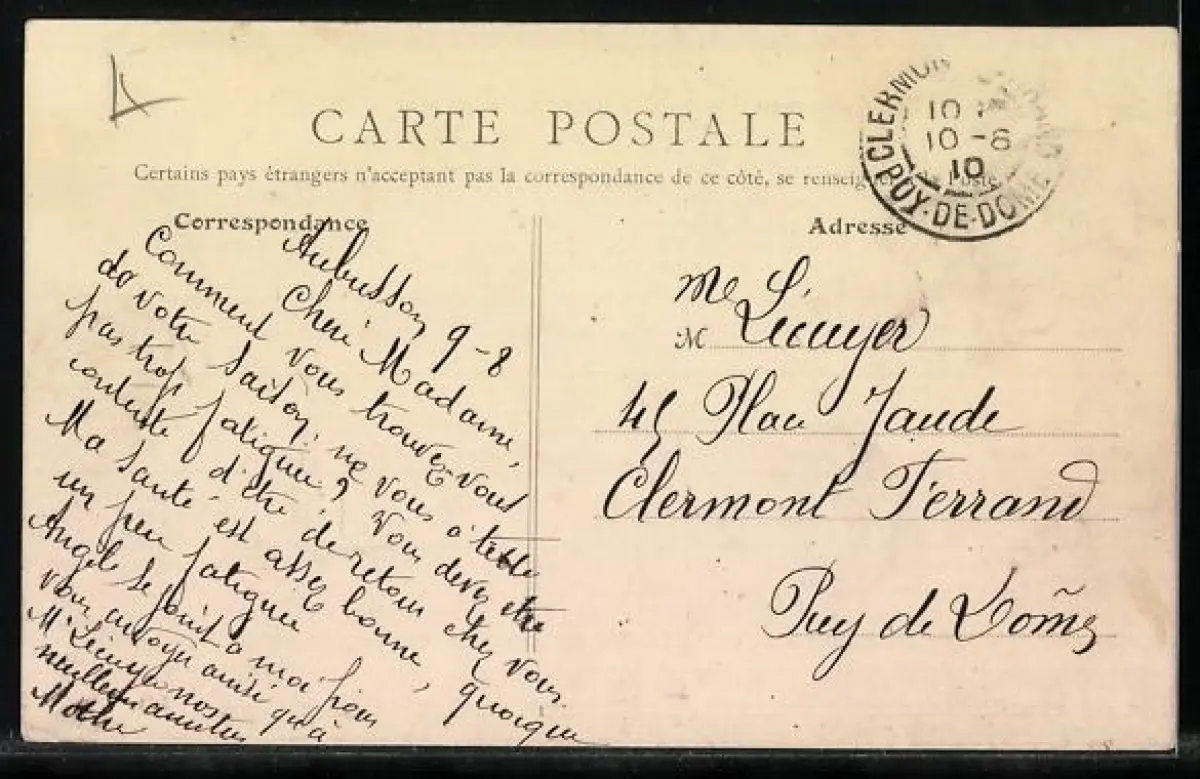 CARTE POSTALE
Certains pays étrangers n'acceptant pas la correspondance de ce côté, se renseigner à la Poste
Correspondance
Adresse
CLERMON
10
10 - 8
10
PUY-DE-DOME
Aubusson 9-8
Cherè Madame,
Comment vous trouvez vous
de votre saison; ne vous a telle
pas trop fatiguée? Vous devez etre
contente d'être de retour chez vous.
Ma santé est assez bonne, quoique
un peu fatiguée
Angele se joint a moi pour
vous envoyer ainsi qu'à
Mr Lécuyer nos
meilleures amitiés
Me Lécuyer
M
45 Place Jaude
Clermont Ferrand
Puy de Dôme